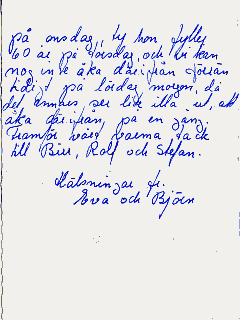 på onsdag, ty hon fyller
60 år på torsdag, och vi kan
nog inte åka därifrån förrän
tidigt på lördag morgon, då
det annars ser lite illa ut, att
åka därifrån, på en gång.
Framför våra varma tack
till Bill, Rolf och Stefan.
Hälsningar fr.
Eva och Björn